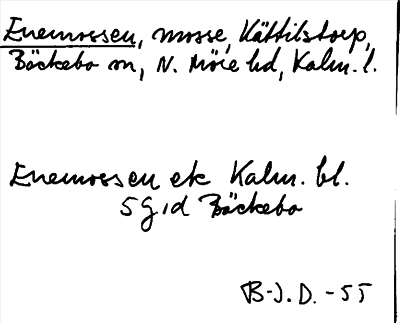 Enemossen, mosse, Kättilstorp,
Bäckebo sn, N. Möre hd, Kalm. l.
Enemossen ek Kalm. bl.
5 g 1 d Bäckebo
B-J. D. -55